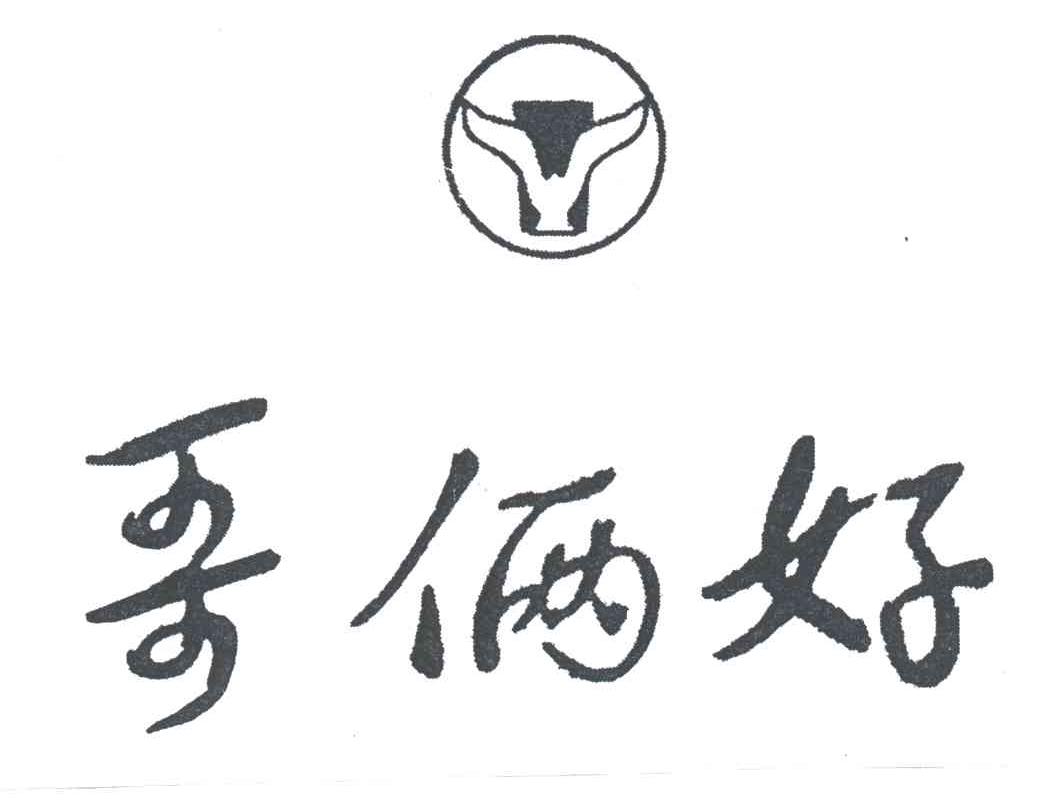 哥俩好